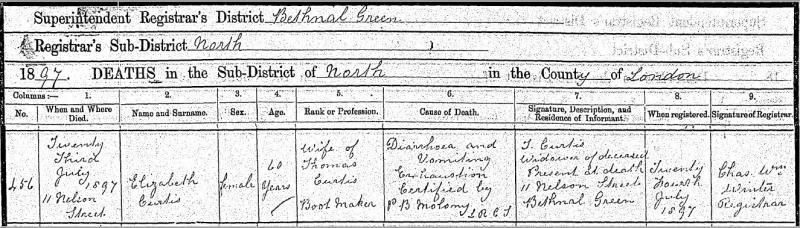 Superintendent Registrar's District Bethnal Green
Registrar's Sub-District North
1897. DEATHS in the Sub-District of North in the County of London
Columns:— 1. 2. 3. 4. 5. 6. 7. 8. 9.
No. When and Where Died. Name and Surname. Sex. Age. Rank or Profession. Cause of Death. Signature, Description, and Residence of Informant. When registered. Signature of Registrar.
456
Twenty
Third
July
1897
11 Nelson
Street
Elizabeth
Curtis
Female
60
Years
Wife of
Thomas
Curtis
Boot Maker
Diarrhoea and
Vomiting
Exhaustion
Certified by
P B Molony
L R C S
T. Curtis
Widower of deceased
Present at death
11 Nelson Street
Bethnal Green
Twenty
Fourth
July
1897
Chas. Wm
Winter
Registrar